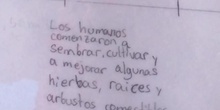 Los humanos
comenzaron a
sembrar, cultivar y
a mejorar algunas
hierbas, raíces y
arbustos